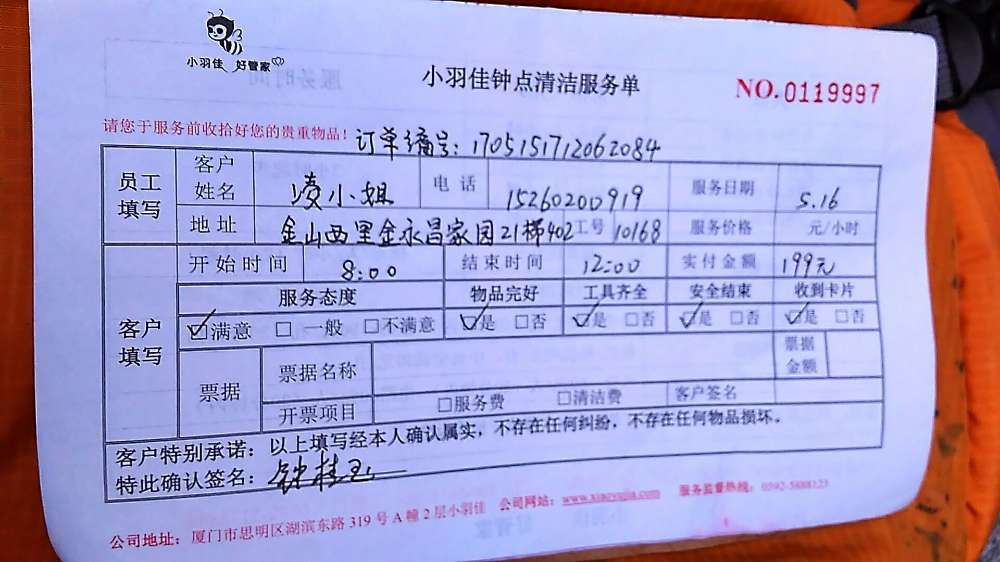 小羽佳 好管家
小羽佳钟点清洁服务单
NO.0119997
请您于服务前收拾好您的贵重物品！ 订单编号：1705151712062084
员工填写 客户姓名 凌小姐 电话 15260200919 服务日期 5.16
地址 金山西里金永昌家园21梯402 工号 10168 服务价格 元/小时
客户填写 开始时间 8:00 结束时间 12:00 实付金额 199元
服务态度 物品完好 工具齐全 安全结束 收到卡片
☑满意 □一般 □不满意 ☑是 □否 ☑是 □否 ☑是 □否 ☑是 □否
票据 票据名称 票据金额
开票项目 □服务费 □清洁费 客户签名
客户特别承诺：以上填写经本人确认属实，不存在任何纠纷，不存在任何物品损坏。
特此确认签名：钟桂玉
公司地址：厦门市思明区湖滨东路319号A幢2层小羽佳 公司网站：www.xiaoyujia.com 服务监督热线：0592-5888123